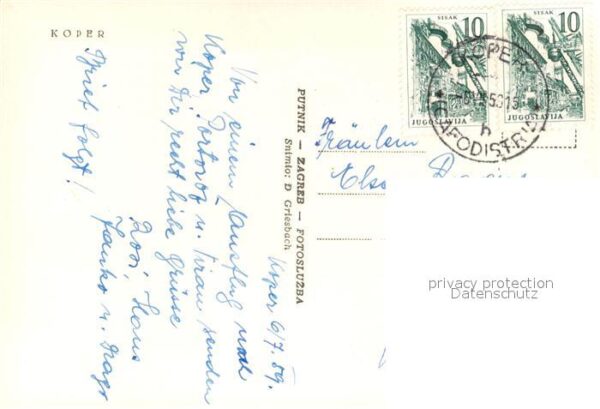 KOPER
Koper 6/7.59.
Von einem Ausflug nach
Koper, Portorož u. Piran senden
wir Dir recht liebe Grüsse
Rosi, Hans
Janko u. Drago
Brief folgt!
PUTNIK — ZAGREB — FOTOSLUŽBA
Snimio: D Griesbach
SISAK
10
JUGOSLAVIJA
SISAK
10
JUGOSLAVIJA
KOPER
CAPODISTRIA
Fräulein
Elsa
privacy protection
Datenschutz